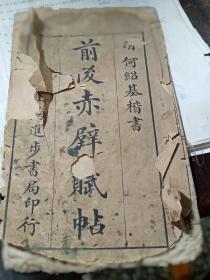 何紹基楷書
前後赤壁賦帖
進步書局印行